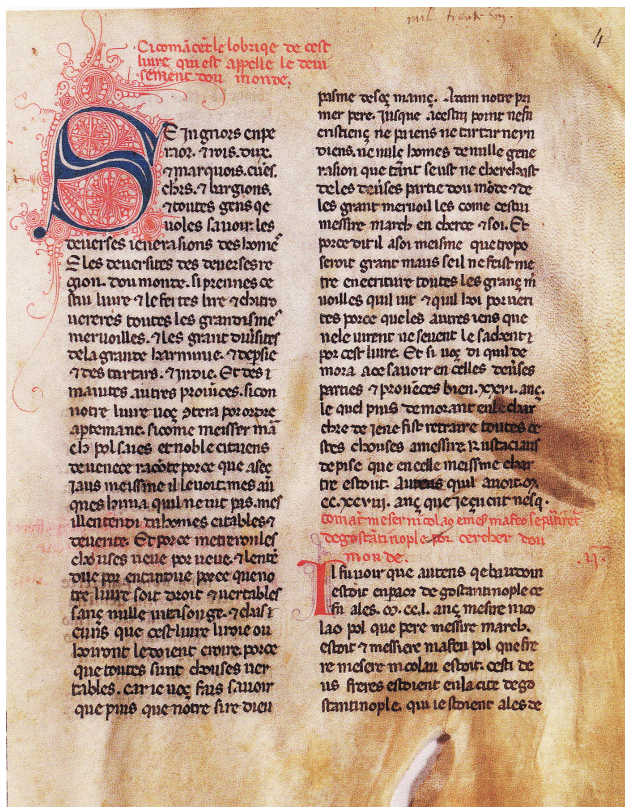 4
Ci comācēt le lobrique de cest
livre qui est appelle le devi
sement dou monde.
SEingnors enpe
raor. ⁊ rois. dux.
⁊ marquois. cues.
chrs. ⁊ bargions.
⁊ toutes gens qe
voles savoir. les
deverses jenerasions des home
E les deversites des deverses re
gion. dou monde. si prennes ce
stui livre ⁊ le feites lire ⁊ chi
vereres toutes les grandismes
mervoilles. ⁊ les grant div̄sites
de la grante harminie. ⁊ de psie
⁊ des tartars. ⁊ indie. Et des i
maintes autres provīces. sicon
notre livre voȝ ɔtera por ordre
apertemant. sicome meisser mā
ch pol saies et noble citaiens
de venece racōte por ce que a seȝ
iaus meisme il le voit. mes aū
ques hi ni a quil ne vit pas. mes
il lentendi da homes citables ⁊
de verite. Et por ce metreron les
chouses veue por veue. ⁊ lente
due por entandue por ce que no
tre livre soit droit ⁊ vertables
sanç nulle mansonge. ⁊ chas
cuns que cest livre liroie ou
hoiront le doient croire. por ce
que toutes sunt chouses ver
tables. car je voȝ fais savoir
que puis que notre sire dieu
pasme de seç mainç. Adam notre pri
mer pere. jusque a cestui point ne fu
cristienç ne paiens ne tartar ne yn
diens. ne nule homes de nulle gene
rasion que tāt seust ne cherchast
de les div̄ses partie dou mōde ⁊ de
les grant mervoil les come cestui
messire march en cherce ⁊ soi. Et
por ce dit il a soi meisme que trop
seroit grant maus se il ne feist me
tre en ecriture toutes les granç m
voilles quil vit ⁊ quil hoi por veri
tes por ce que les autres jens que
ne le virent ne sevent le sachent
por cest livre. Et si voȝ di quil de
mora a ce savoir en celles div̄ses
parties ⁊ provēces bien. xxvi. anç.
le quel puis demorant en le char
chre de jene fist retraire toutes ce
stes chouses a messire Rustacians
de pise que en celle meissme char
tre estoit. Au tens quil avoit. m.
cc. xcviii. anç que jeçucrit vesq.
Comāt meser nicolao e mes mafeo se partirēt
de gostātinople por cercher dou
monde. ii.
Il fu voir que au tens qe baudoin
estoit enpaor de gostantinople ce
fu ales. m. cc. l. anç mesire nico
lao pol que pere mesire march.
estoit ⁊ messiere mafeu pol que fre
re mesere nicolau estoit. cesti de
us freres estoient en la cite de go
stantinople. qui ie stoient ales de